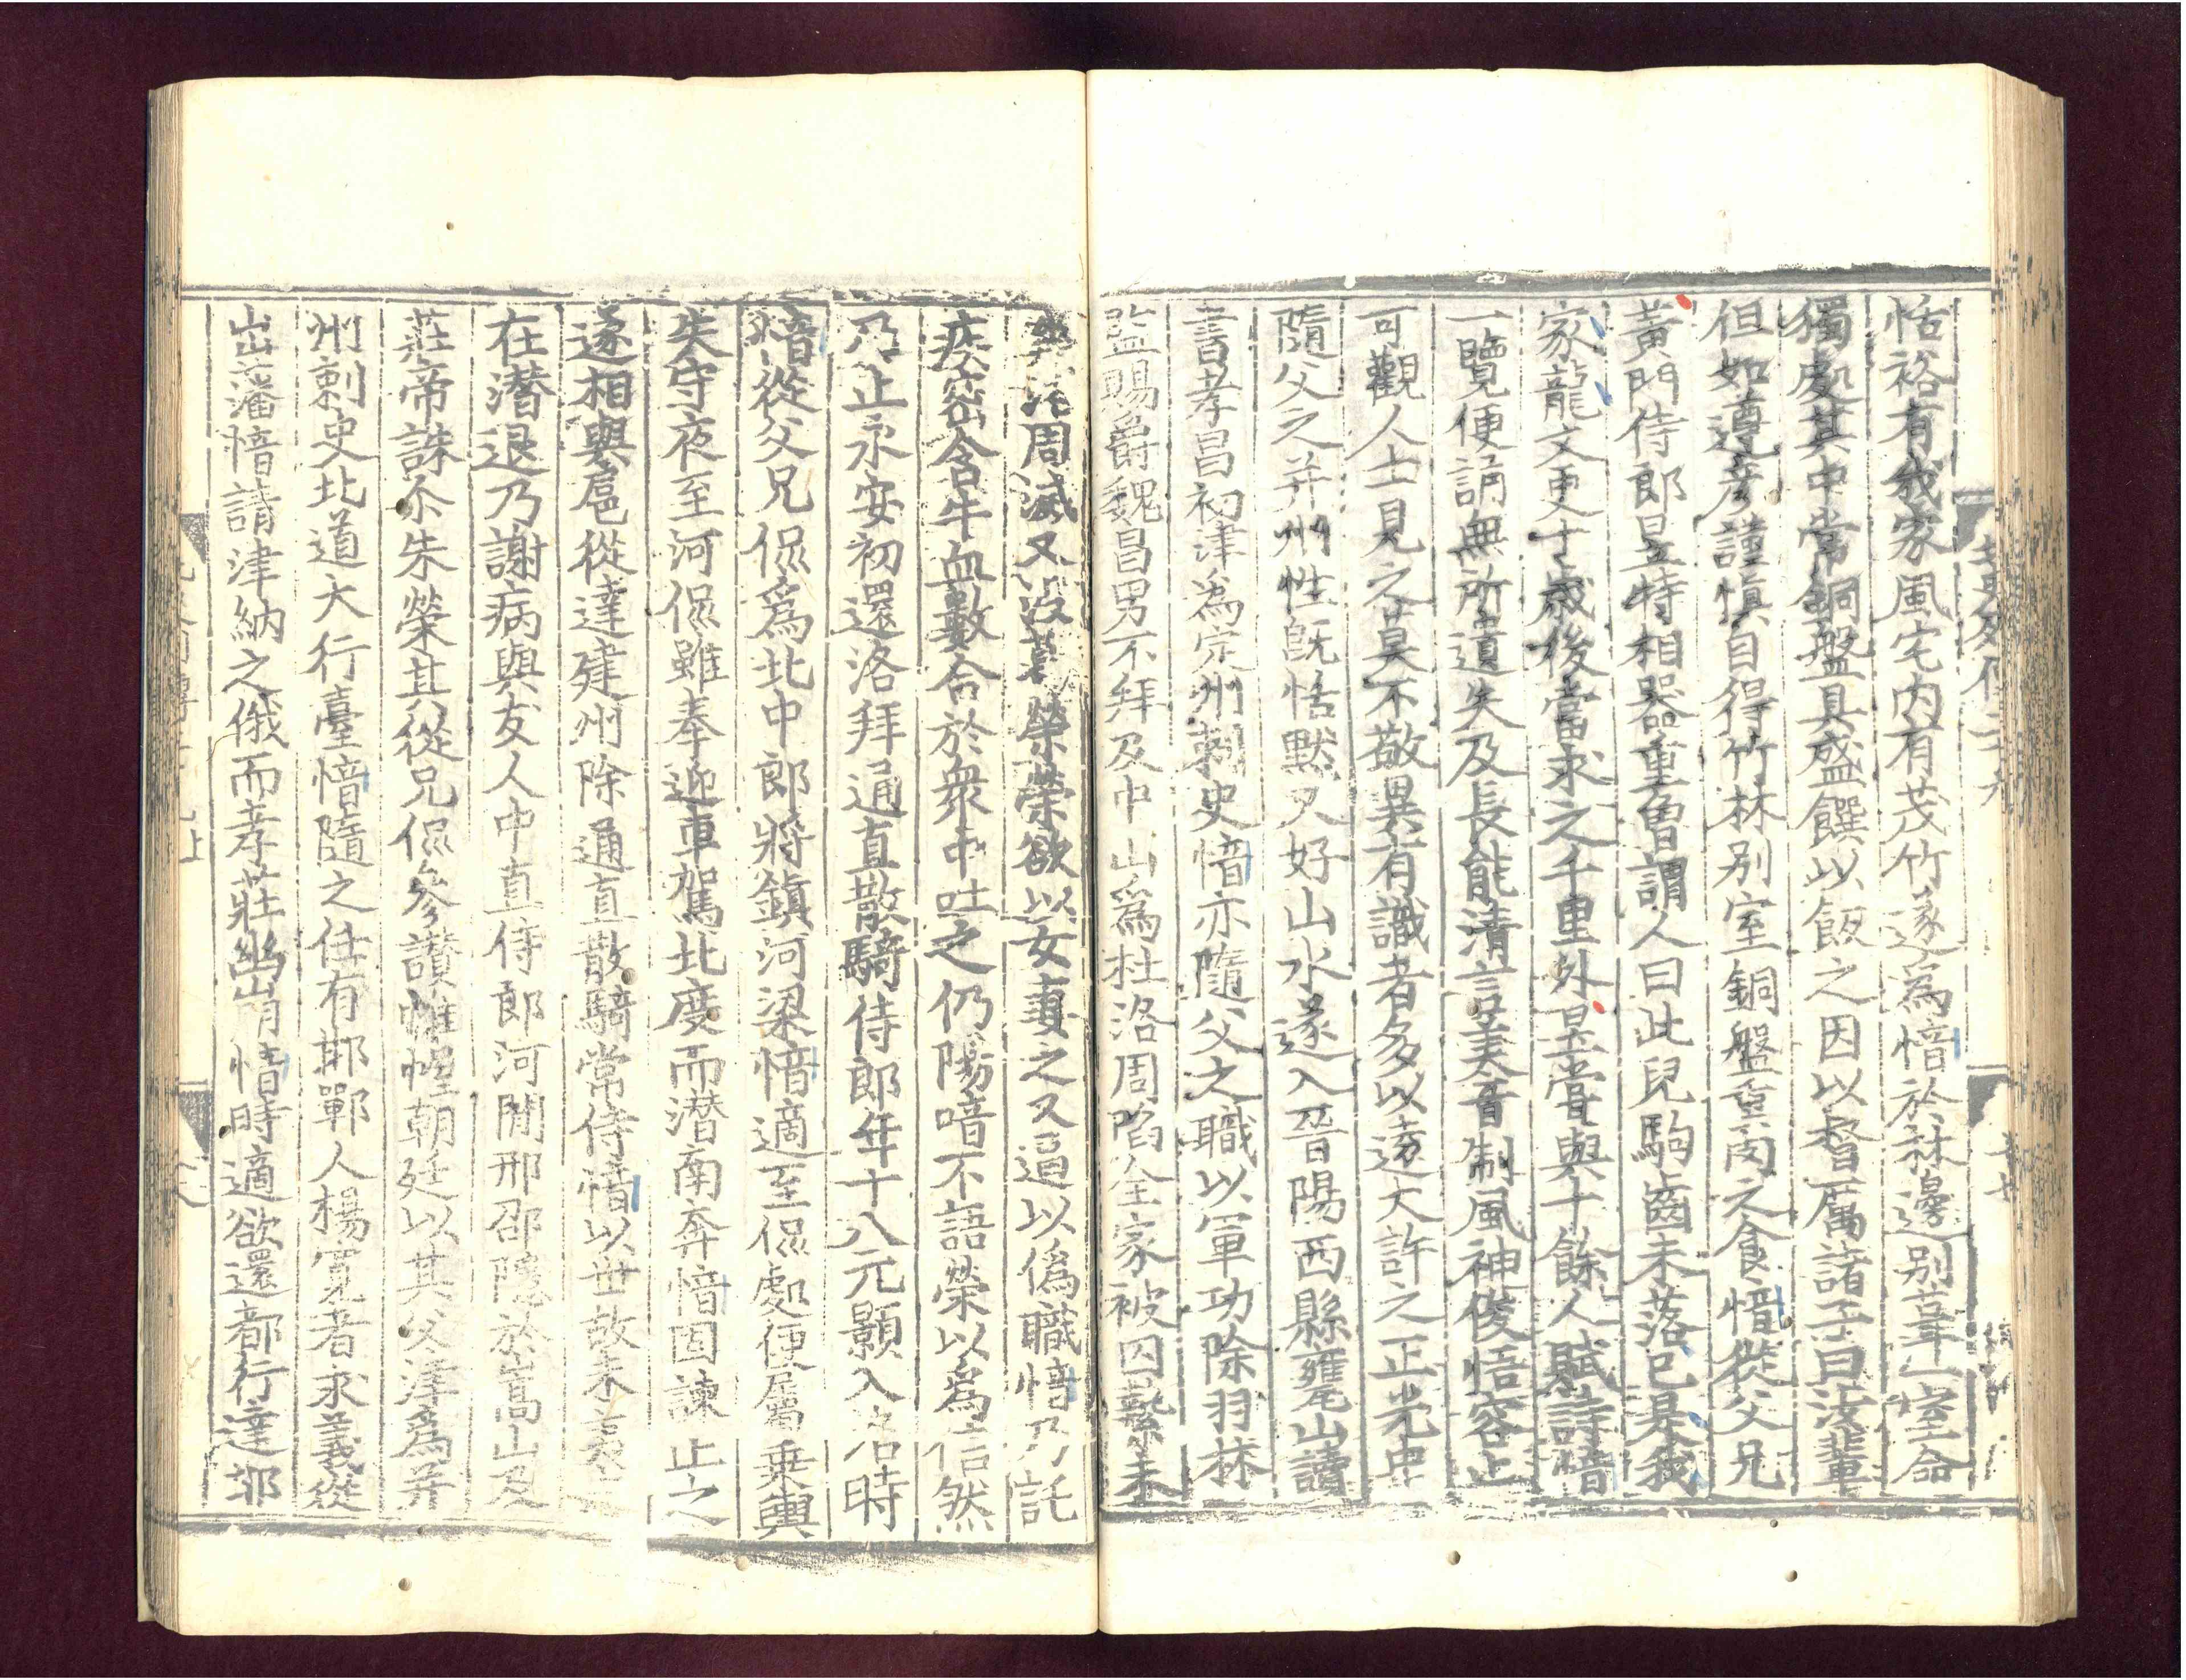 恬裕有我家風宅内有茂竹遂為愔於林邊别葺一室命
獨處其中常銅盤具盛饌以飯之因以督厲諸子曰汝輩
但如遵彦謹慎自得竹林别室銅盤重肉之食愔從父兄
黄門侍郎昱特相器重曽謂人曰此兒駒齒未落已是我
家龍文更十歲後當求之千里外昱嘗與十餘人賦詩愔
一覽便誦無所遺失及長能清言美音制風神俊悟容止
可觀人士見之莫不敬異有識者多以遠大許之正光中
隨父之并州性旣恬默又好山水遂入晉陽西縣甕山讀
書孝昌初津為定州刺史愔亦隨父之職以軍功除羽林
監賜爵魏昌男不拜及中山為杜洛周陷全家被囚縶未
幾洛周滅又没葛榮榮欲以女妻之又逼以僞職愔乃託
疾密含牛血數合於衆中吐之仍陽喑不語榮以為信然
乃止永安初還洛拜通直散騎侍郎年十八元顥入洛時
愔從父兄侃為北中郎將鎮河梁愔適至侃處便屬乗輿
失守夜至河侃雖奉迎車駕北度而潜南奔愔固諫止之
遂相與扈從達建州除通直散騎常侍愔以世故未夷
在潜退乃謝病與友人中直侍郎河間邢邵隱於嵩山及
莊帝誅尒朱榮其從兄侃參讃帷幄朝廷以其父津為并
州刺史北道大行臺愔隨之任有邯鄲人楊寛者求義從
出藩愔請津納之俄而孝莊幽崩愔時適欲還都行達邯